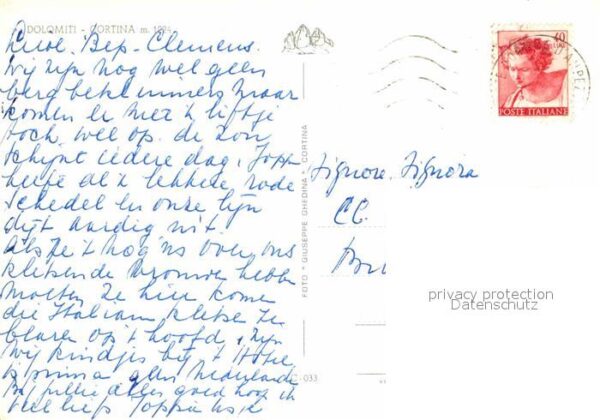 DOLOMITI - CORTINA m.
Lieve. Bep - Clemens.
Wij zijn nog wel geen
berg beklimmers maar
komen er met 't liftje
toch wel op. de zon
schijnt iedere dag. Joppie
heeft al 'n lekkere rode
schedel en onze lijn
dijt aardig uit.
Als ze 't nog 'ns over ons
kletsende vrouwen hebben
moeten ze hier komen
die Italianen kletsen ze
blaren op 't hoofd, zijn
wij kindjes bij 't Hotel
is prima geen Nederlands
alles goed hoor ik
veel liefs Joppie
FOTO * GIUSEPPE GHEDINA * CORTINA
- 033
40
POSTE ITALIANE
Signore. Signora
CC.
privacy protection
Datenschutz